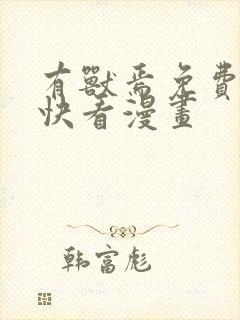 有獸焉免費
快看漫畫
韩富彪